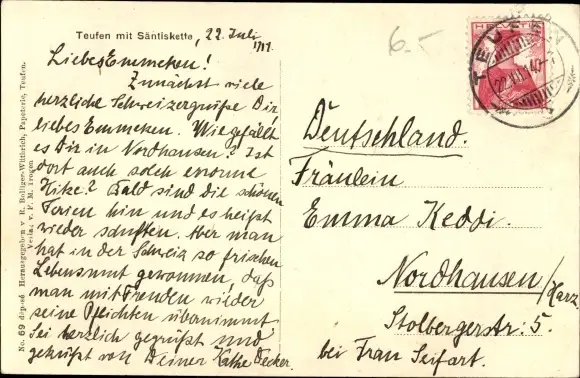 Teufen mit Säntiskette, 22. Juli
1911.
Liebes Emmeken!
Zunächst viele
herzliche Schweizergrüße Dir,
liebes Emmeken. Wie gefällt
es Dir in Nordhausen? Ist
dort auch solch enorme
Hitze? Bald sind die schönen
Ferien hin und es heißt
wieder schuften. Aber man
hat in der Schweiz so frischen
Lebensmut gewonnen, daß
man mit Freuden wieder
seine Pflichten übernimmt.
Sei herzlich gegrüßt und
geküßt von Deiner Käthe Decker.
6.-
HELVETIA
TEUFEN
Deutschland.
Fräulein
Emma Keddi.
Nordhausen/Harz.
Stolbergerstr. 5.
bei Frau Seifart.
No. 69 deposé Herausgegeben v. R. Bolliger-Wittbrich, Papeterie, Teufen.
Verlag v. F. M. Trogen